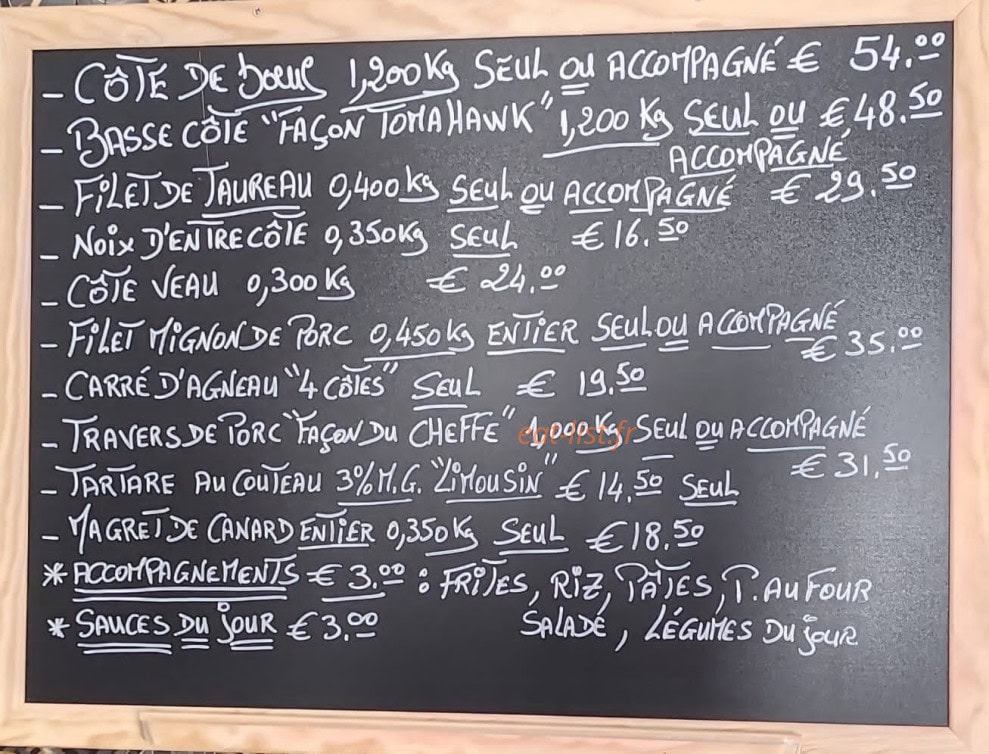 - CÔTE DE boeuf 1,200Kg SEUL OU ACCOMPAGNÉ € 54.00
- BASSE CÔTE "FAÇON TOMAHAWK" 1,200 Kg SEUL OU € 48.50
ACCOMPAGNÉ
- FILET DE TAUREAU 0,400Kg SEUL OU ACCOMPAGNÉ € 29.50
- NOIX D'ENTRECÔTE 0,350Kg SEUL € 16.50
- CÔTE VEAU 0,300Kg € 24.00
- FILET MIGNON DE PORC 0,450Kg ENTIER SEUL OU ACCOMPAGNÉ
€ 35.00
- CARRÉ D'AGNEAU "4 CÔTES" SEUL € 19.50
- TRAVERS DE PORC "FAÇON DU CHEFFE" 1,000Kg SEUL OU ACCOMPAGNÉ
eat-list.fr
€ 31.50
- TARTARE AU COUTEAU 3% M.G. "LIMOUSIN" € 14.50 SEUL
- MAGRET DE CANARD ENTIER 0,350Kg SEUL € 18.50
* ACCOMPAGNEMENTS € 3.00 : FRITES, RIZ, PÂTES, P. AU FOUR
* SAUCES DU jOUR € 3.00 SALADE, LÉGUMES DU jOUR